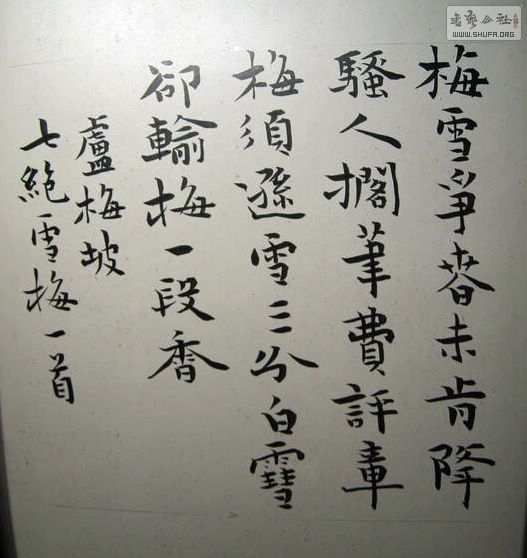 梅雪爭春未肯降
騷人擱筆費評章
梅須遜雪三分白雪
卻輸梅一段香
盧梅坡
七絕雪梅一首
書藝公社
WWW.SHUFA.ORG